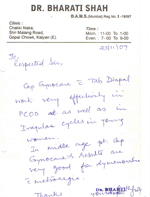 DR. BHARATI SHAH
B.A.M.S.
Clinic :
Chakki Naka,
Shri Malang Road,
Gopal Chowk, Kalyan (E)
Time :
Morn. : 11-00 To 1-00
Even. : 7-00 To 9-00
To,
Respected Sir,
Cap Gynocare & Tab Dlapal
work very effectively in
PCOD as well as in
Irregular cycles in young
women.
In middle age of Cap
Gynocare's results are
very good for dysmenorrhea
&
Thanks
Dr. BHARATI